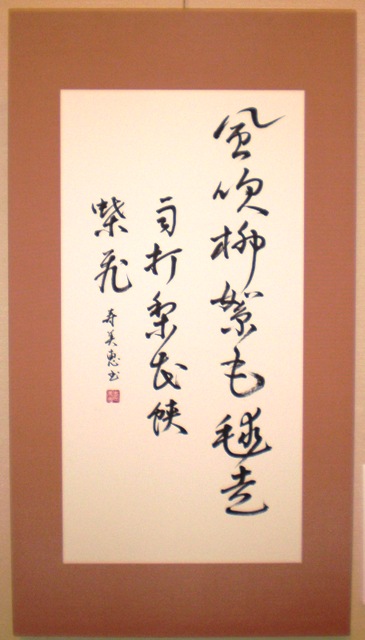 風吹柳絮毛毬走
雨打梨花蛺
蝶飛 寿美恵書